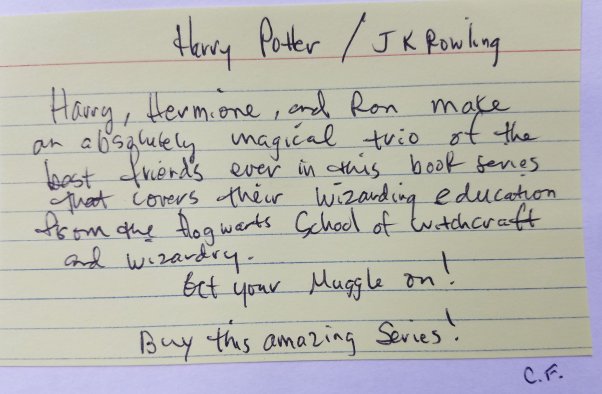 Harry Potter / J K Rowling
Harry, Hermione, and Ron make
an absolutely magical trio of the
best friends ever in this book series
that covers their wizarding education
from the Hogwarts School of Witchcraft
and Wizardry.
Get your Muggle on!
Buy this amazing Series!
C.F.